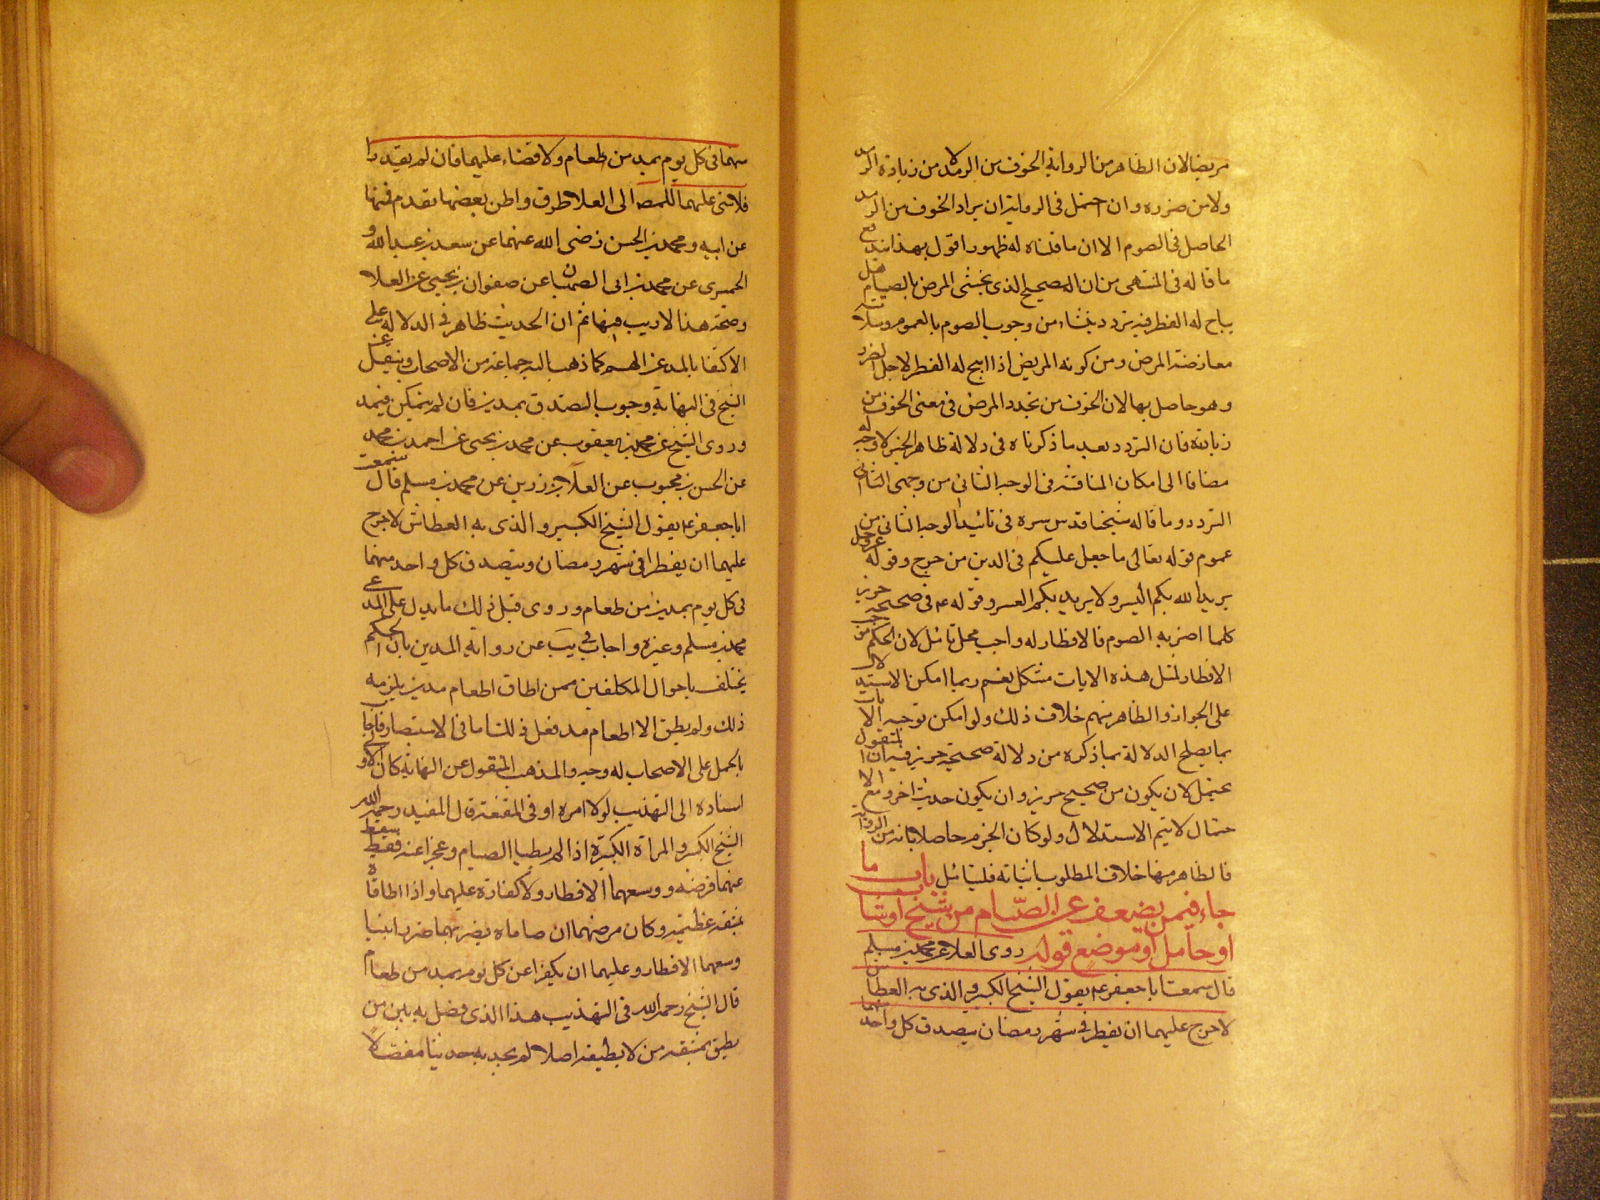 مريضا لان الظاهر من الرواية الخوف من الرمد لا من زيادة الرمد
ولا من ضرره وان احتمل فى الرواية ان يراد الخوف من الرمد
الحاصل فى الصوم الا ان ما قلناه له ظهور اقول بهذا يندفع
ما قاله فى المنتهى من ان الصحيح الذى يخشى المرض بالصيام هل
يباح له الفطر فيه تردد ينشاء من وجوب الصوم بالعموم وسلامته
معارضة المرض ومن كونه المريض اذا ابيح له الفطر لاجل الضرر
وهو حاصل بها لان الخوف من تجدد المرض فى معنى الخوف من
زيادته فان التردد بعد ما ذكرناه فى دلالة ظاهر الخبر لا وجه له
مضافا الى امكان المناقشة فى الوجه الثانى من وجهى الثانى
التردد وما قاله شيخنا قدس سره فى تائيد الوجه الثانى من
عموم قوله تعالى ما جعل عليكم فى الدين من حرج وقوله عز وجل
يريد الله بكم اليسر ولا يريد بكم العسر وقوله ع فى صحيحة حريز
كلما اضر به الصوم فالافطار له واجب محل تامل لان الحكم
الافطار لمثل هذه الايات مشكل نعم ربما امكن الاستدلال
على الجواز والظاهر منهم خلاف ذلك ولو امكن توجيه الايات
بما يصلح الدلالة بما ذكره من دلالة صحيحة حريز فيه ان المنقول
يحتمل لان يكون من صحيح حريز وان يكون حديث اخر ومع الا
حتمال لا يتم الاستدلال ولو كان الجزم حاصلا بانه من الرواية
فالظاهر منها خلاف المطلوب باثباته فليتامل باب ما
جاء فيمن يضعف عن الصيام من شيخ او شاب
او حامل او موضع قوله روى العلا عن محمد بن مسلم
قال سمعت ابا جعفر ع يقول الشيخ الكبير والذى به العطاش
لا حرج عليهما ان يفطرا فى شهر رمضان يتصدق كل واحد منهما
سهما فى كل يوم بمد من طعام ولا قضاء عليهما فان لم يقدرا
فلا شى عليهما للمص الى العلا طرق واظن بعضها تقدم فمنها
عن ابيه ومحمد بن الحسن رضى الله عنهما عن سعد بن عبد الله و
الحميرى عن محمد بن ابى الصهبان عن صفوان بن يحيى عن العلا
وصحة هذا لا ريب فيها ثم ان الحديث ظاهر فى الدلالة على
الاكتفا بالمد عن الهم كما ذهب اليه جماعة من الاصحاب ونقل عن
الشيخ فى النهاية وجوب التصدق بمدين فان لم يتمكن فبمد
وروى الشيخ عن محمد بن يعقوب عن محمد بن يحيى عن احمد بن محمد
عن الحسن بن محبوب عن العلا بن رزين عن محمد بن مسلم قال سمعت
ابا جعفر ع يقول الشيخ الكبير والذى به العطاش لا حرج
عليهما ان يفطرا فى شهر رمضان ويتصدق كل واحد منهما
فى كل يوم بمدين من طعام وروى قبل ذلك ما يدل على المد عن
محمد بن مسلم وغيره واجاب فى يب عن رواية المدين بان الحكم
يختلف باحوال المكلفين فمن اطاق اطعام مدين يلزمه
ذلك ولو لم يطق الا اطعام مد فعل ذلك اما فى الاستبصار فاجا
بالحمل على الاصحاب له وجه والمذهب المنقول عن النهاية كان الاولى
اسناده الى التهذيب لولا امره او فى المقنعة قال المفيد رحمه الله
الشيخ الكبير والمراة الكبيرة اذا لم يطيقا الصيام وعجزا عنه فقد سقط
عنهما فرضه ووسعهما الافطار ولا كفارة عليهما واذا اطاقاه
بمشقة عظيمة وكان مرضهما ان صاماه يضر بهما ضررا بينا
وسعهما الافطار وعليهما ان يكفرا عن كل يوم بمد من طعام
قال الشيخ رحمه الله فى التهذيب هذا الذى فصل به بين من
يطيق بمشقة ومن لا يطيقه اصلا لم يجد به حديثا مفصلا